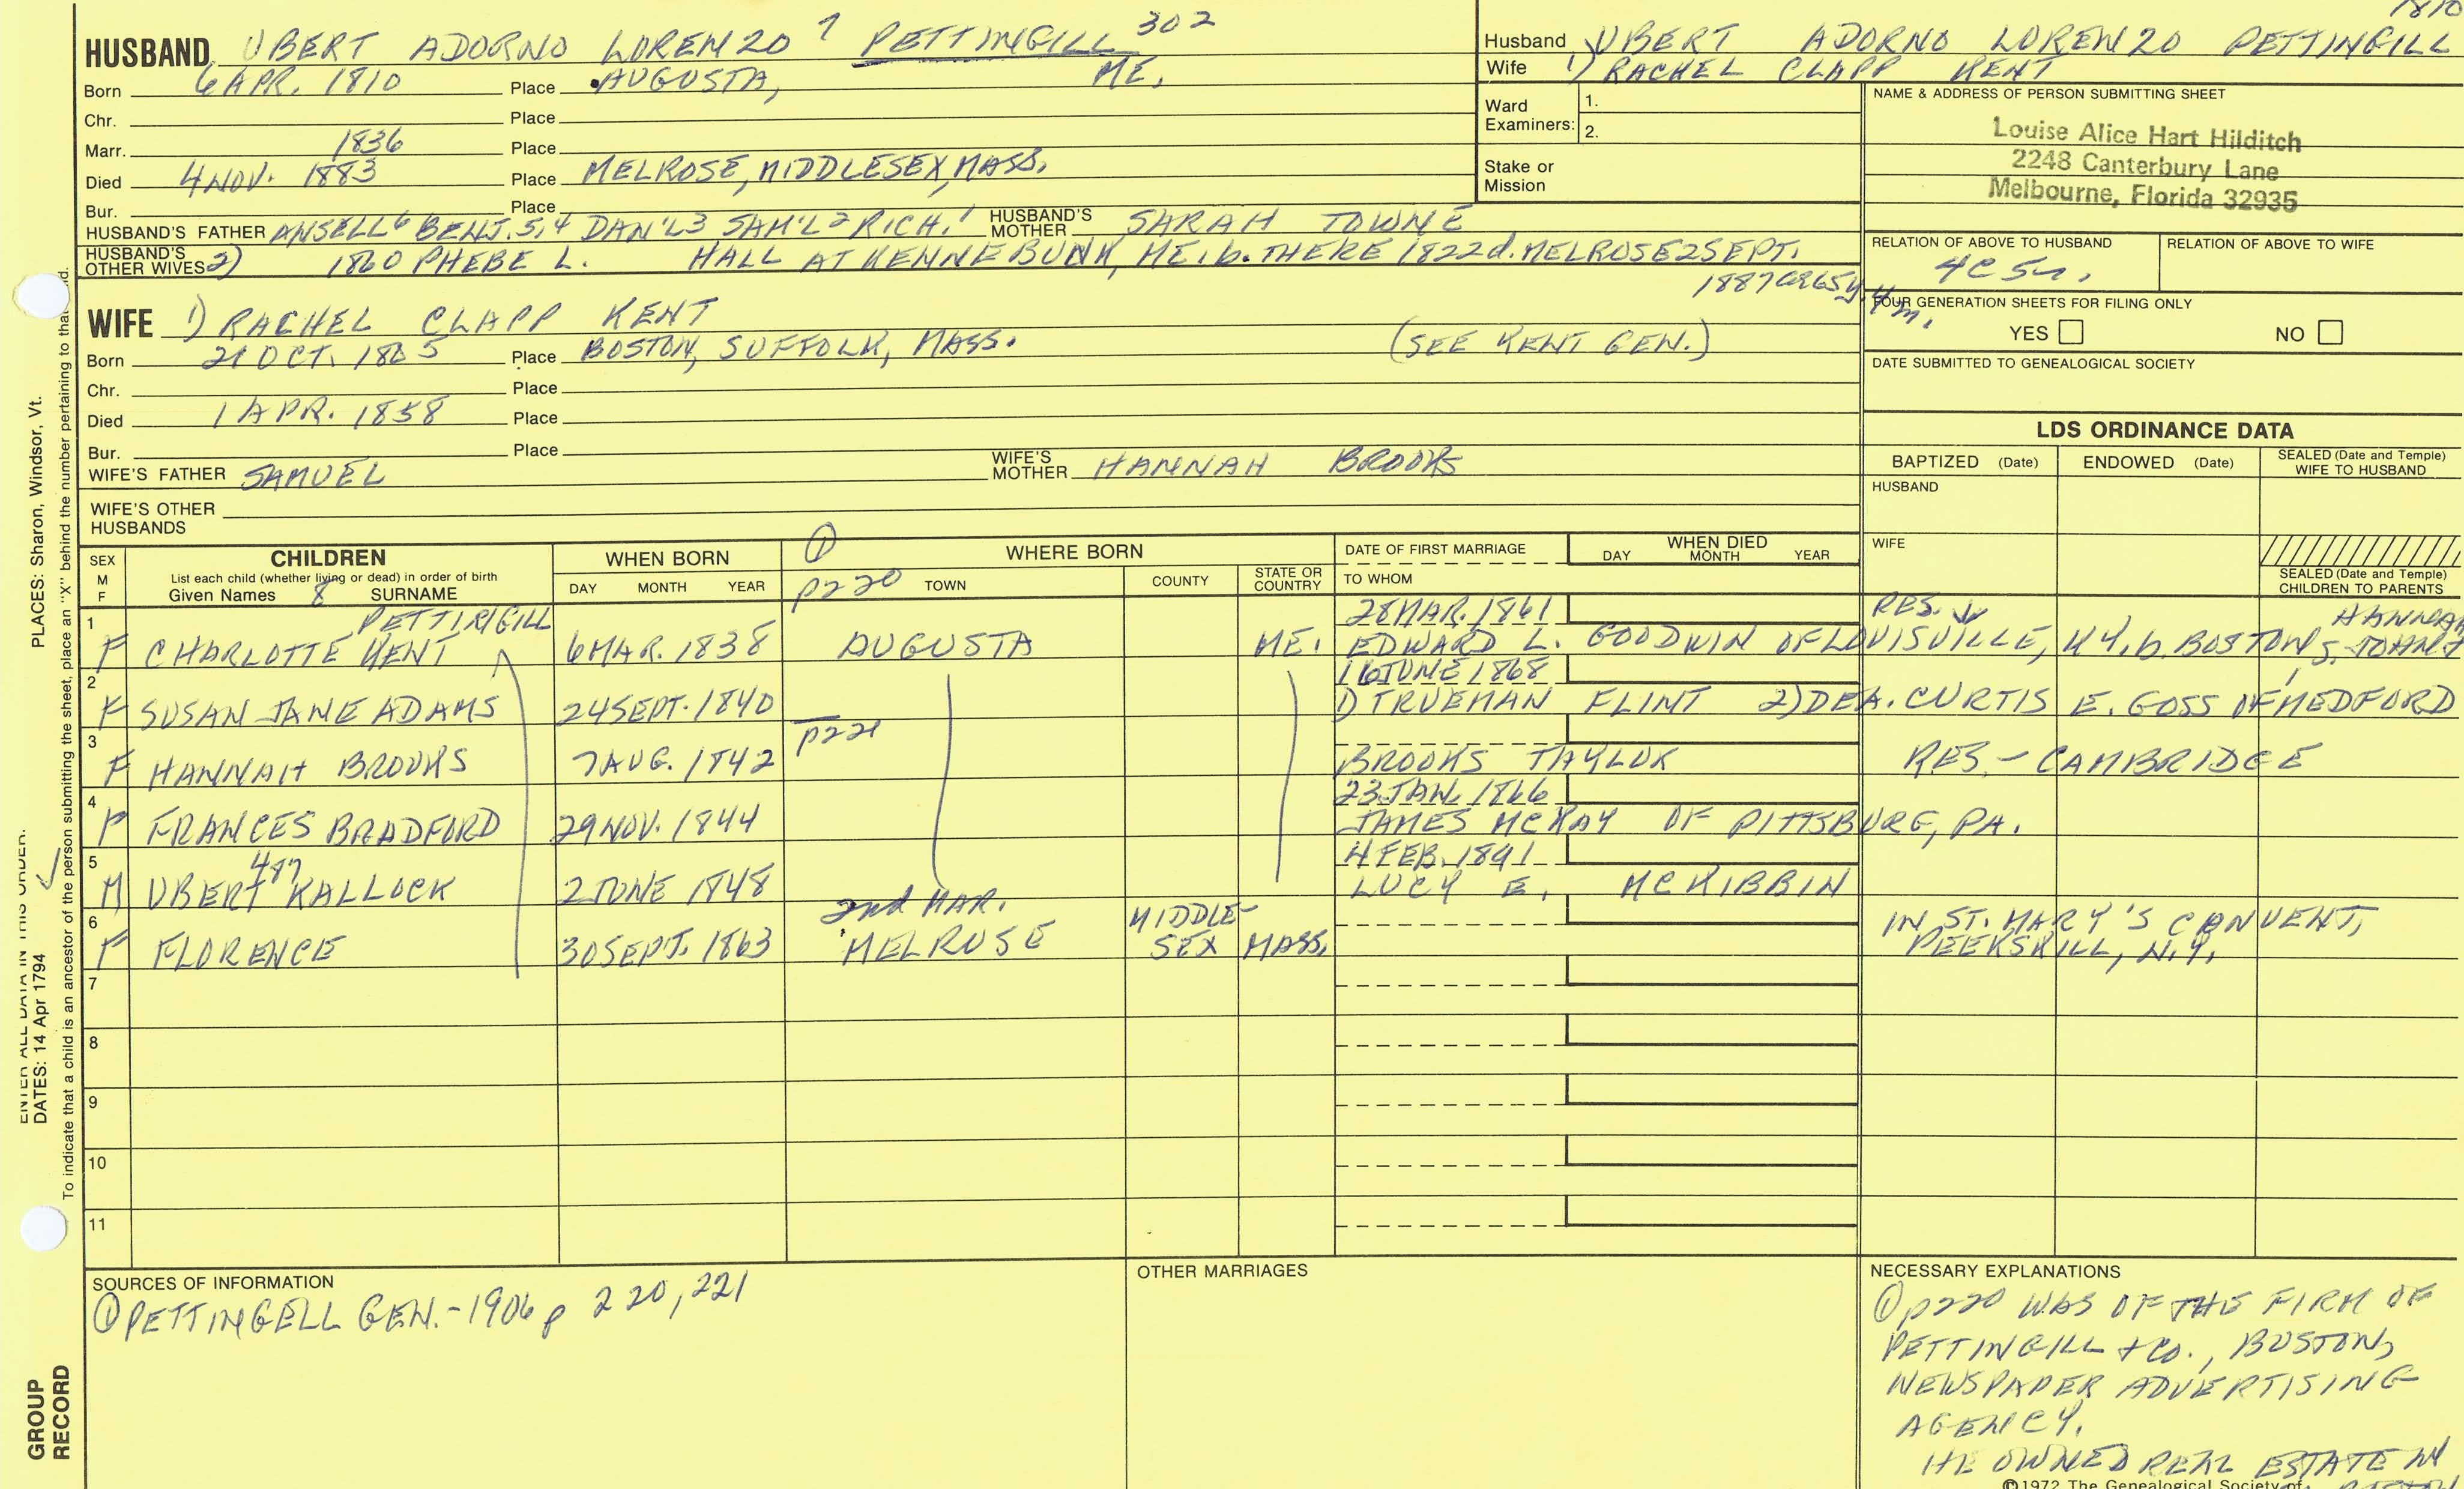 HUSBAND UBERT ADORNO LORENZO 7 PETTINGILL 302
Born 6 APR. 1810 Place AUGUSTA, ME.
Chr. Place
Marr. 1836 Place
Died 4 NOV. 1883 Place MELROSE, MIDDLESEX, MASS.
Bur. Place
HUSBAND'S FATHER ANSELL 6 BENJ. 5,4 DAN'L 3 SAM'L 2 RICH. 1 HUSBAND'S MOTHER SARAH TOWNE
HUSBAND'S OTHER WIVES 2) 1860 PHEBE L. HALL AT KENNEBUNK, ME. b. THERE 1822 d. MELROSE 2 SEPT.
1887 65y 4m.
WIFE 1) RACHEL CLAPP KENT
Born 21 OCT. 1805 Place BOSTON, SUFFOLK, MASS. (SEE KENT GEN.)
Chr. Place
Died 1 APR. 1858 Place
Bur. Place
WIFE'S FATHER SAMUEL WIFE'S MOTHER HANNAH BROOKS
WIFE'S OTHER HUSBANDS
1810
Husband UBERT ADORNO LORENZO PETTINGILL
Wife 1) RACHEL CLAPP KENT
Ward Examiners: 1.
2.
Stake or Mission
NAME & ADDRESS OF PERSON SUBMITTING SHEET
Louise Alice Hart Hilditch
2248 Canterbury Lane
Melbourne, Florida 32935
RELATION OF ABOVE TO HUSBAND RELATION OF ABOVE TO WIFE
4C5
FOUR GENERATION SHEETS FOR FILING ONLY
YES NO
DATE SUBMITTED TO GENEALOGICAL SOCIETY
LDS ORDINANCE DATA
BAPTIZED (Date) ENDOWED (Date) SEALED (Date and Temple) WIFE TO HUSBAND
HUSBAND
WIFE
SEALED (Date and Temple) CHILDREN TO PARENTS
SEX M F
CHILDREN
List each child (whether living or dead) in order of birth
Given Names 8 SURNAME
WHEN BORN
DAY MONTH YEAR
① WHERE BORN
p220 TOWN COUNTY STATE OR COUNTRY
DATE OF FIRST MARRIAGE
TO WHOM
WHEN DIED
DAY MONTH YEAR
PETTINGILL 28 MAR. 1861 RES. HANNAH
1 F CHARLOTTE KENT 6 MAR. 1838 AUGUSTA ME. EDWARD L. GOODWIN OF LOUISVILLE, KY. b. BOSTON, S. JOHN &
16 JUNE 1868
2 F SUSAN JANE ADAMS 24 SEPT. 1840 1) TRUEMAN FLINT 2) DEA. CURTIS E. GOSS OF MEDFORD
p221
3 F HANNAH BROOKS 7 AUG. 1842 BROOKS TAYLOR RES. - CAMBRIDGE
23 JAN. 1866
4 F FRANCES BRADFORD 29 NOV. 1844 JAMES MCKAY OF PITTSBURG, PA.
487 4 FEB. 1891
5 M UBERT KALLOCK 2 JUNE 1848 LUCY E. MCKIBBIN
2nd MAR.
6 F FLORENCE 30 SEPT. 1863 MELROSE MIDDLESEX MASS. IN ST. MARY'S CONVENT, PEEKSKILL, N.Y.
7
8
9
10
11
SOURCES OF INFORMATION
① PETTINGELL GEN. - 1906 p 220, 221
OTHER MARRIAGES
NECESSARY EXPLANATIONS
① p220 WAS OF THE FIRM OF
PETTINGILL & CO., BOSTON,
NEWSPAPER ADVERTISING
AGENCY.
HE OWNED REAL ESTATE IN
©1972 The Genealogical Society of
PLACES: Sharon, Windsor, Vt.
To indicate that a child is an ancestor of the person submitting the sheet, place an "X" behind the number pertaining to that
ENTER ALL DATA IN THIS ORDER:
DATES: 14 Apr 1794
GROUP RECORD